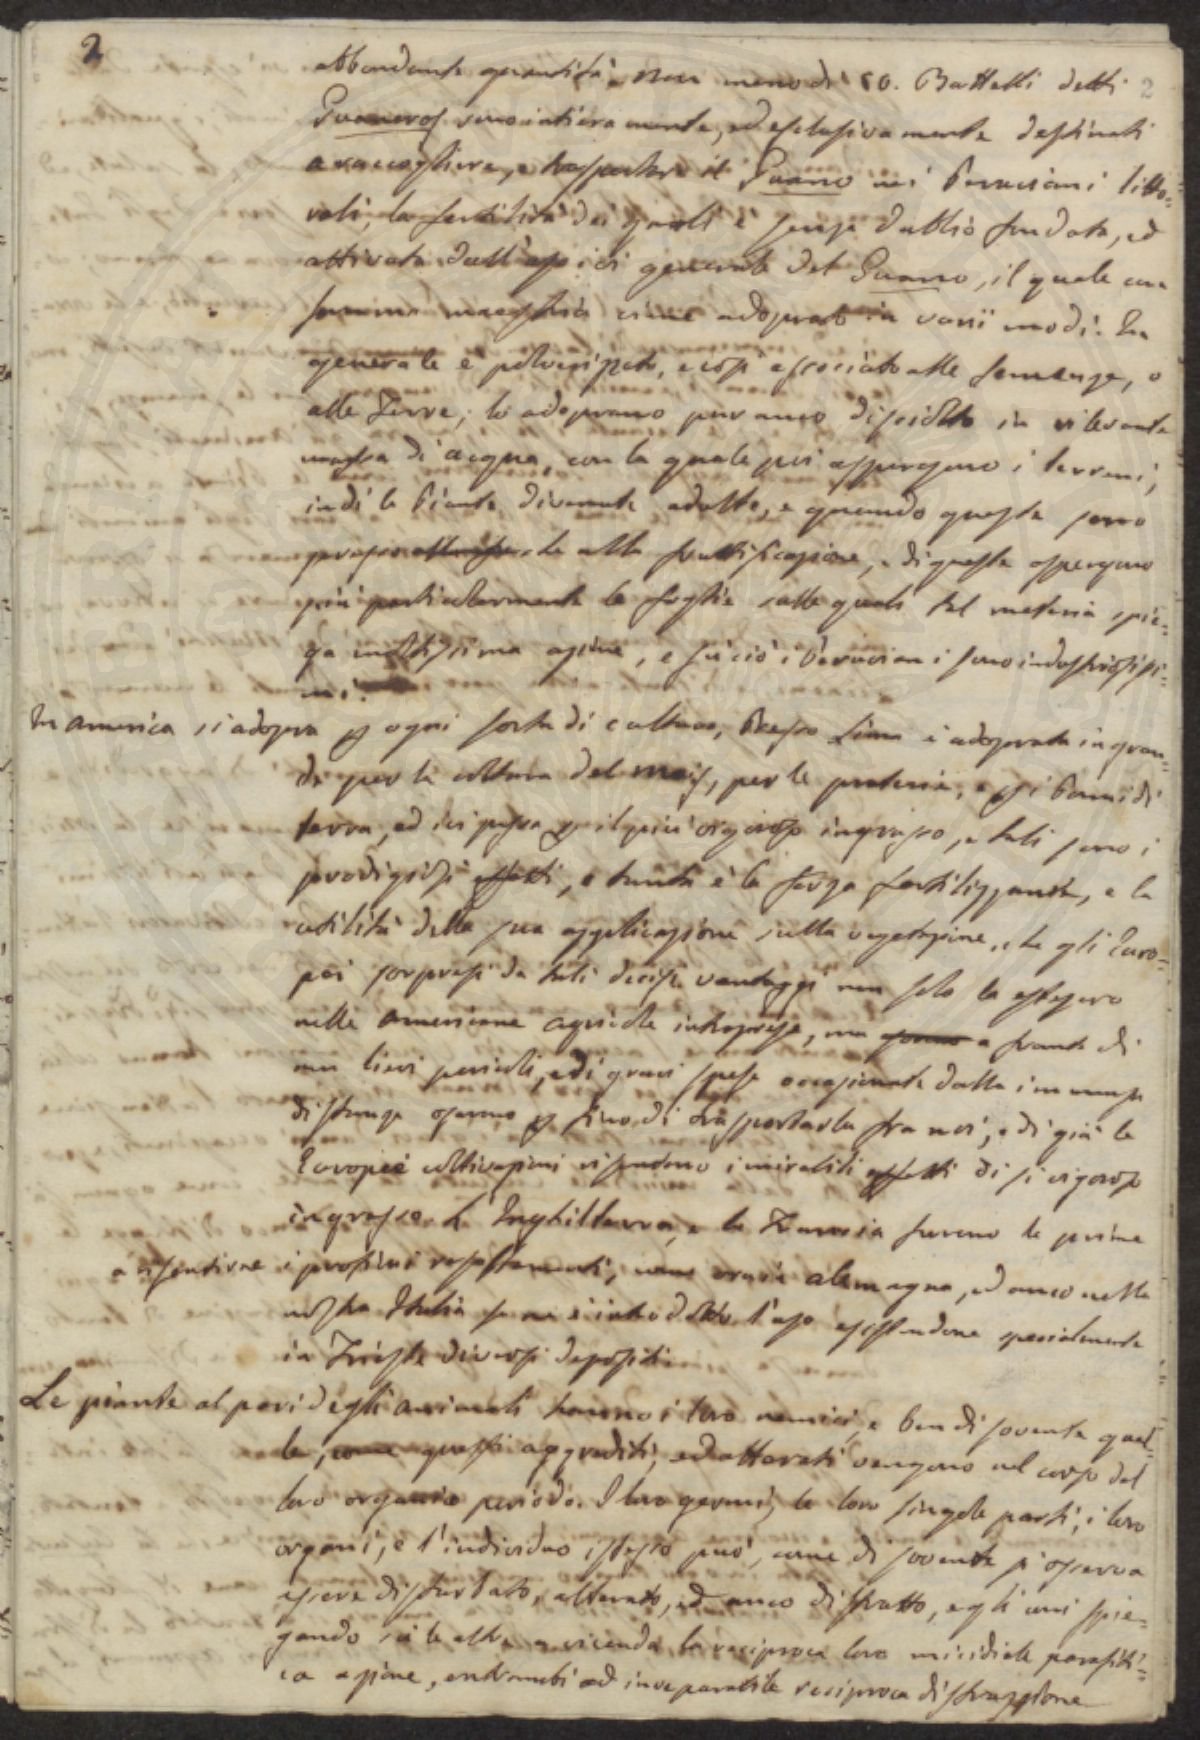 2
abbondante quantità, non meno di 50. Battelli detti 2
Guaneros sono intieramente, ed esclusivamente destinati
a raccogliere, e trasportare il Guano nei Peruviani litto=
rali, la fertilità dei quali è senza dubbio fondata, ed
attivata dall'uso in generale del Guano, il quale con
somma maestria viene adoprato in varii modi. In
generale è polverizzato, e così associato alle semenze, o
alle Terre; lo adoprano pur anco disciolto in rilevante
massa di acqua, con la quale poi aspergono i terreni,
indi le Piante divenute adulte, e quando queste sono
alla fruttificazione, di queste aspergono
più particolarmente le foglie sulle quali tal materia spie=
ga moltissima azione, e in ciò i Peruviani sono industriosissi=
mi.
In America si adopra p ogni sorta di coltura, Presso Lima è adoprata in gran=
de per la coltura del mais, per le praterie, e p i Pomi di
terra, ed ivi passa p il più vigoroso ingrasso, e tali sono i
prodigiosi effetti, e tanta è la forza fertilizzante, e la
utilità della sua applicazione sulla vegetazione, che gli Euro=
pei sorpresi da tali decisi vantaggi non solo la estesero
nelle Americane agricole intraprese, ma a fronte di
non lievi pericoli, e di gravi spese occasionate dalla immensa
distanza osarono p fino di trasportarla fra noi, e di già le
Europee coltivazioni risentono i mirabili effetti di sì vigoroso
ingrasso. L'Inghilterra, e la Francia furono le prime
a risentirne i proficui resultamenti, alemagna, ed anco nella
nostra Italia se ne è introdotto l'uso esistendone specialmente
in Trieste diversi depositi.
Le piante al pari degli animali hanno i loro nemici, e ben di sovente quel=
le, come questi aggrediti, ed alterati vengono nel corso del
loro organico periodo. I loro germi, le loro singole parti, i loro
organi, e l'individuo istesso può, come di sovente si osserva
essere disturbato, alterato, ed anco distrutto, e gli uni spie=
gando su le altre a vicenda la reciproca loro micidiale parassiti=
ca azione, entrambi ad inseparabile reciproca distruzzione